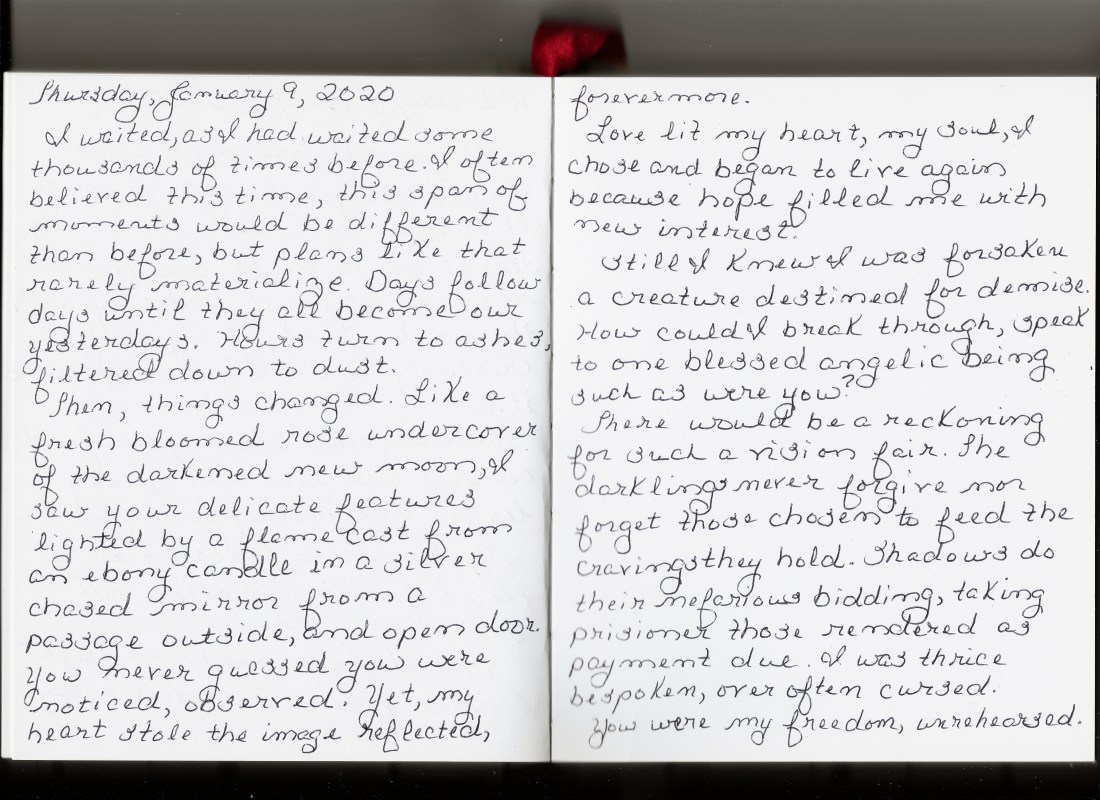 Thursday, January 9, 2020
I waited, as I had waited some
thousands of times before. I often
believed this time, this span of
moments would be different
than before, but plans like that
rarely materialize. Days follow
days until they all become our
yesterdays. Hours turn to ashes,
filtered down to dust.
Then, things changed. Like a
fresh bloomed rose undercover
of the darkened new moon, I
saw your delicate features
lighted by a flame cast from
an ebony candle in a silver
chased mirror from a
passage outside, and open door.
You never guessed you were
noticed, observed. Yet, my
heart stole the image reflected,
forevermore.
Love lit my heart, my soul, I
chose and began to live again
because hope filled me with
new interest.
Still I knew I was forsaken
a creature destined for demise.
How could I break through, speak
to one blessed angelic being
such as were you?
There would be a reckoning
for such a vision fair. The
darklings never forgive nor
forget those chosen to feed the
cravings they hold. Shadows do
their nefarious bidding, taking
prisioner those rendered as
payment due. I was thrice
bespoken, over often cursed.
You were my freedom, unrehearsed.